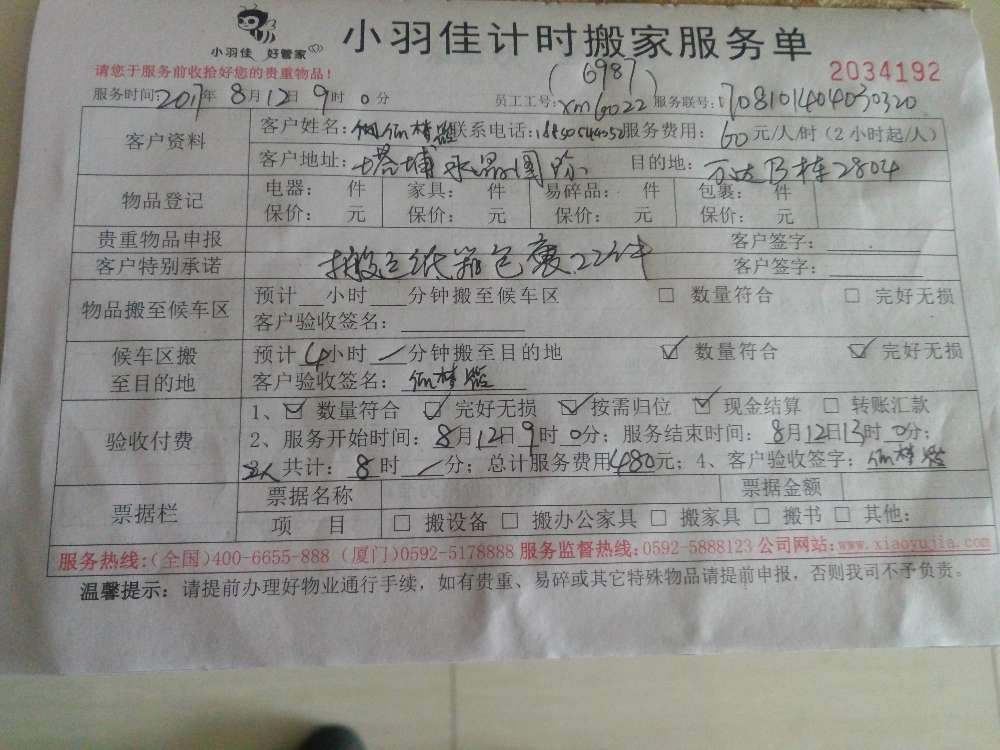 小羽佳 好管家
小羽佳计时搬家服务单
请您于服务前收拾好您的贵重物品!
(6987)
2034192
服务时间:2017年8月12日9时0分 员工工号:xm6022 服务联号:1708101404030320
客户资料
客户姓名: 联系电话: 服务费用:60元/人/时(2小时起/人)
客户地址:塔埔 目的地:万达B栋2804
物品登记
电器: 件 家具: 件 易碎品: 件 包裹: 件
保价: 元 保价: 元 保价: 元 保价: 元
贵重物品申报 客户签字:
客户特别承诺 搬运纸箱包裹22件 客户签字:
物品搬至候车区
预计 小时 分钟搬至候车区 □ 数量符合 □ 完好无损
客户验收签名:
候车区搬至目的地
预计4小时/分钟搬至目的地 ☑ 数量符合 ☑ 完好无损
客户验收签名:
验收付费
1、☑ 数量符合 ☑ 完好无损 ☑ 按需归位 ☑ 现金结算 □ 转账汇款
2、服务开始时间:8月12日9时0分;服务结束时间:8月12日13时0分;
2人共计:8时/分;总计服务费用480元;4、客户验收签字:
票据栏
票据名称 票据金额
项 目 □ 搬设备 □ 搬办公家具 □ 搬家具 □ 搬书 □ 其他:
服务热线:(全国)400-6655-888 (厦门)0592-5178888 服务监督热线:0592-5888123 公司网站:www.xiaoyujia.com
温馨提示:请提前办理好物业通行手续,如有贵重、易碎或其它特殊物品请提前申报,否则我司不予负责。